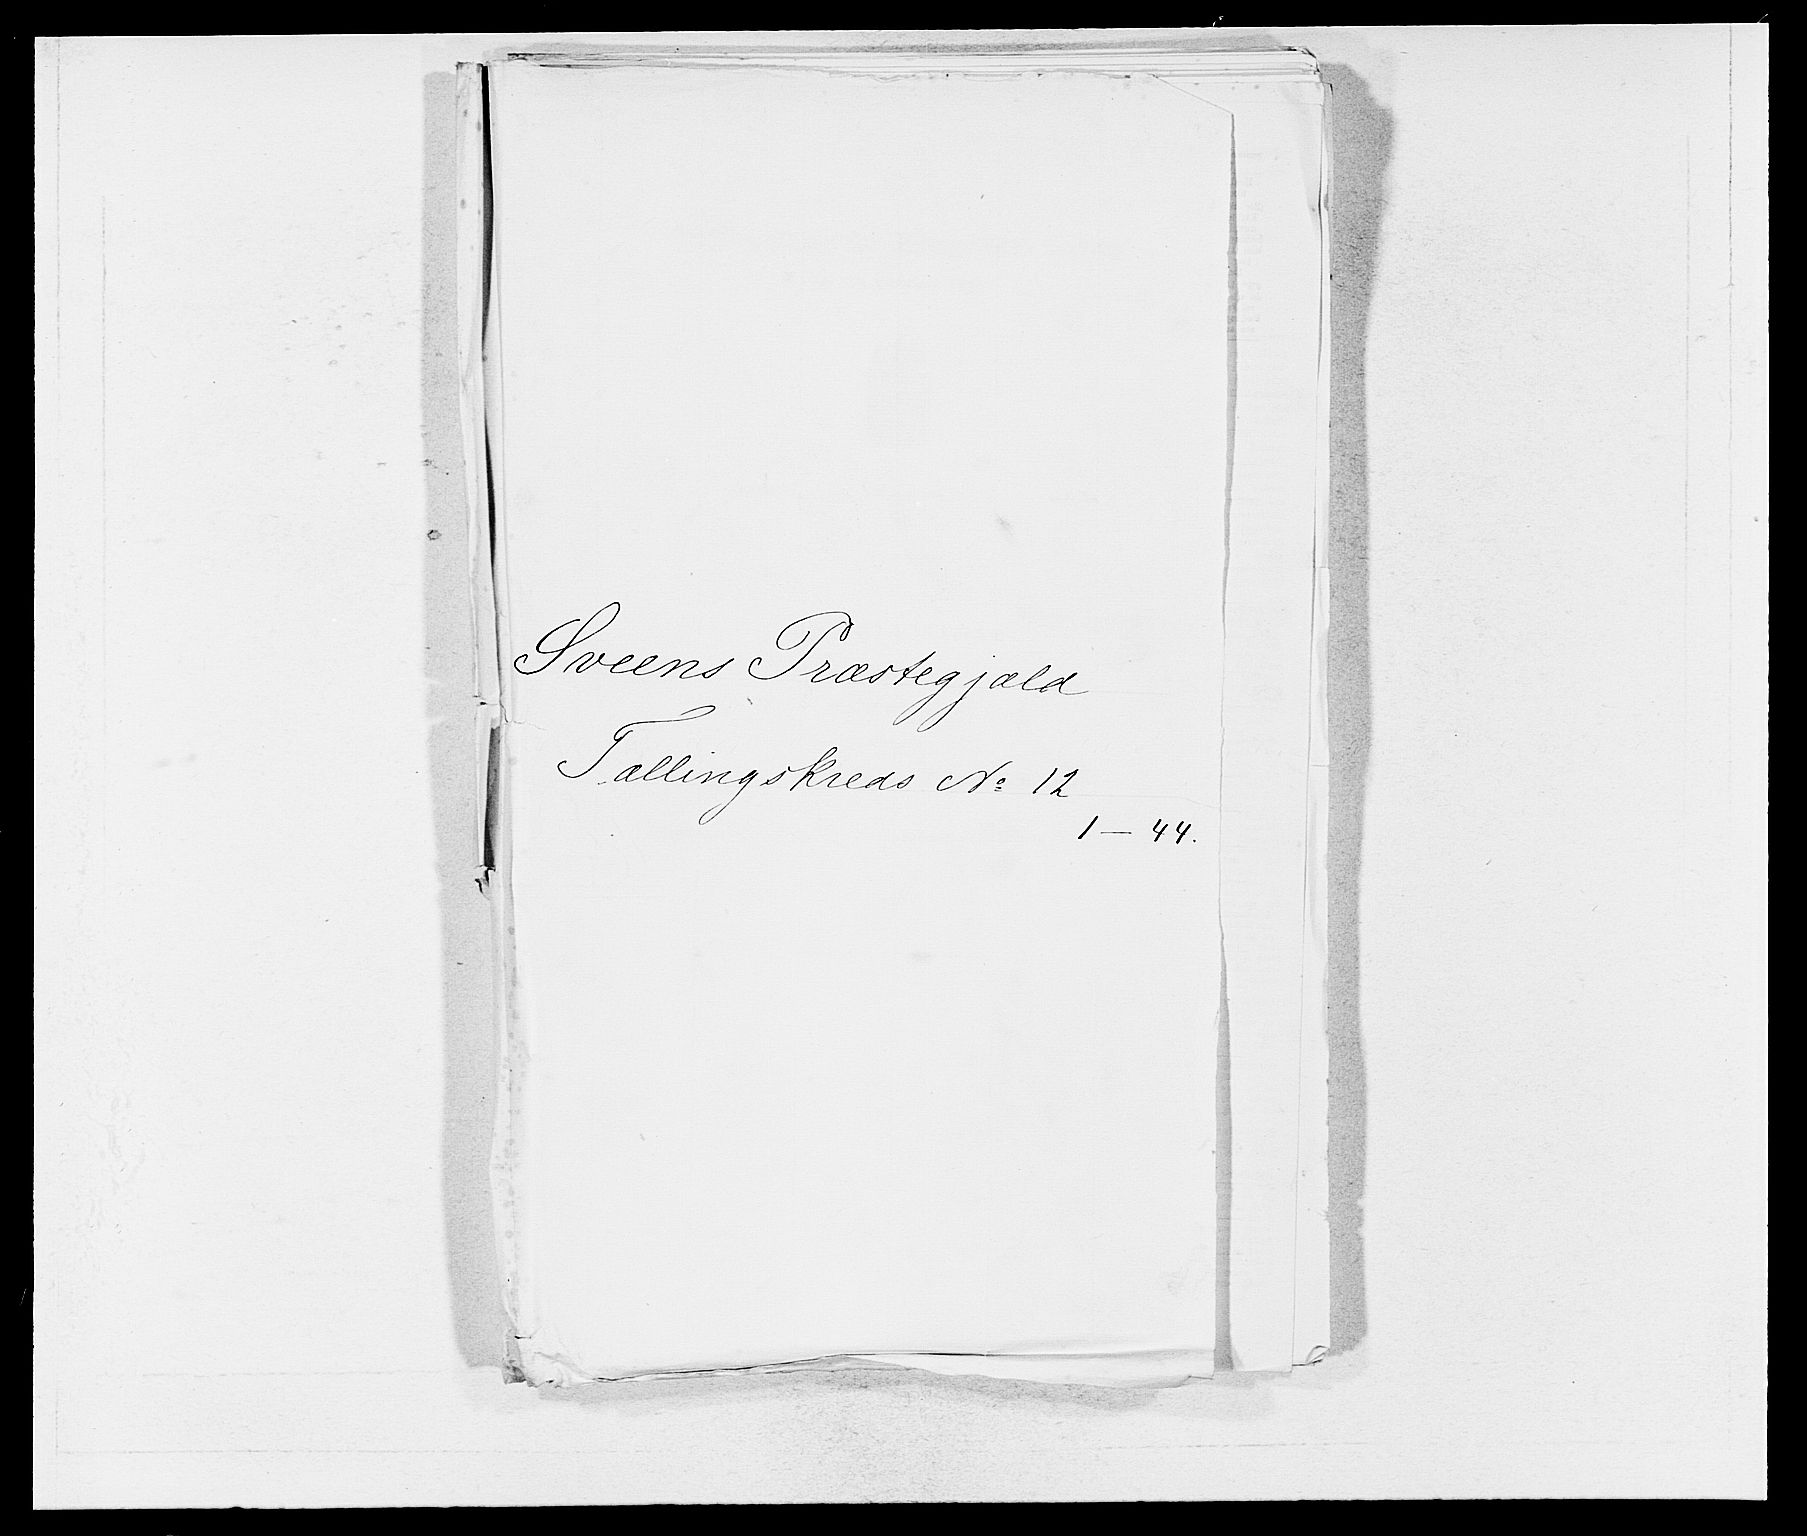 Sveens Præstegjæld
Tællingskreds No 12
1 — 44.